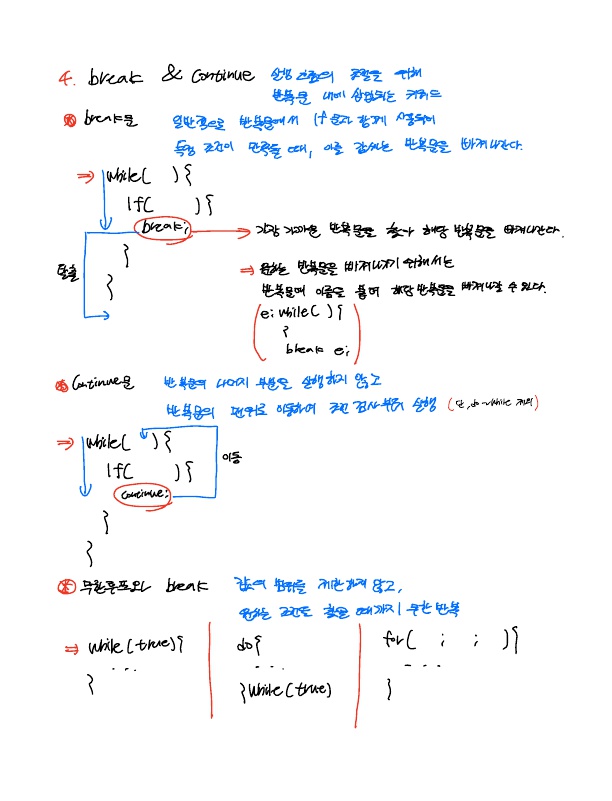 4. break & continue 실행 흐름의 조절을 위해
반복문 내에 삽입되는 키워드
break문 일반적으로 반복문에서 if문과 함께 사용되어
특정 조건이 만족될 때, 이를 감싸는 반복문을 빠져나간다.
⇒ while( ){
If( ){
break; → 가장 가까운 반복문을 찾아 해당 반복문을 빠져나간다.
}
}
탈출
⇒ 원하는 반복문을 빠져나가기 위해서는
반복문에 이름을 붙여 해당 반복문을 빠져나갈 수 있다.
e: while( ){
}
break e;
Continue문 반복문의 나머지 부분을 실행하지 않고
반복문의 맨위로 이동하여 조건 검사부터 실행 (단, do-while 제외)
⇒ while( ){
If( ){
continue;
}
}
이동
무한루프와 break 값의 범위를 제한하지 않고,
원하는 조건을 찾을 때까지 무한 반복
⇒ while(true){
...
}
do{
...
}while(true)
for( ; ; ){
...
}